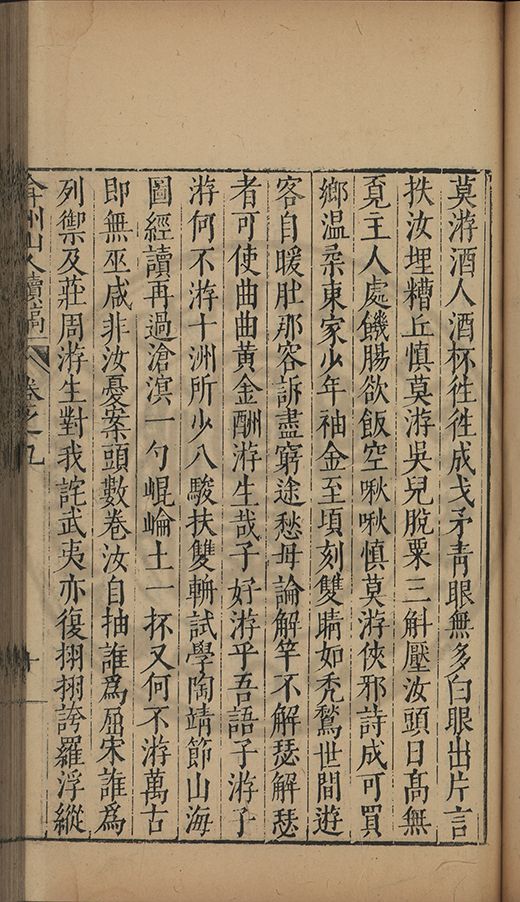 莫游酒人酒杯徃徃成戈矛靑眼無多白眼出片言
抶汝埋糟丘慎莫游吳兒脫粟三斛壓汝頭日髙無
覔主人處饑腸欲飯空啾啾慎莫游俠邪詩成可買
鄉温柔東家少年袖金至頃刻雙睛如禿鶖世間遊
客自暖肚那容訴盡窮途愁毋論解竿不解瑟解瑟
者可使曲曲黃金酬游生哉子好游乎吾語子游子
游何不游十洲所少八駿扶雙輈試學陶靖節山海
圖經讀再過滄溟一勺崐崘土一抔又何不游萬古
即無巫咸非汝憂案頭數卷汝自抽誰爲屈宋誰爲
列禦及莊周游生對我詫武夷亦復栩栩誇羅浮縱
弇州山人續稿 卷之九 十